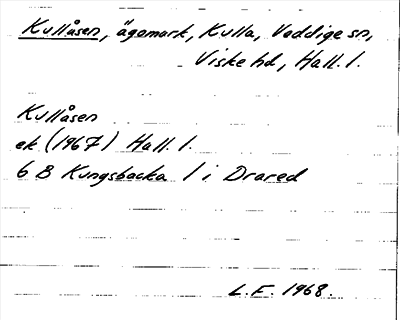 Kullåsen, ägomark, Kulla, Veddige sn,
Viske hd, Hall. l.
Kullåsen
ek (1967) Hall. l.
6 B Kungsbacka 1 i Drared
L.F. 1968.